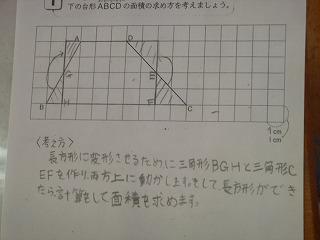 下の台形ABCDの面積の求め方を考えましょう。
A
D
G
E
B
H
F
C
1cm
1cm
〈考え方〉
長方形に変形させるために三角形BGHと三角形C
EFを作り、両方上に動かします。そして、長方形ができ
たら計算をして面積を求めます。